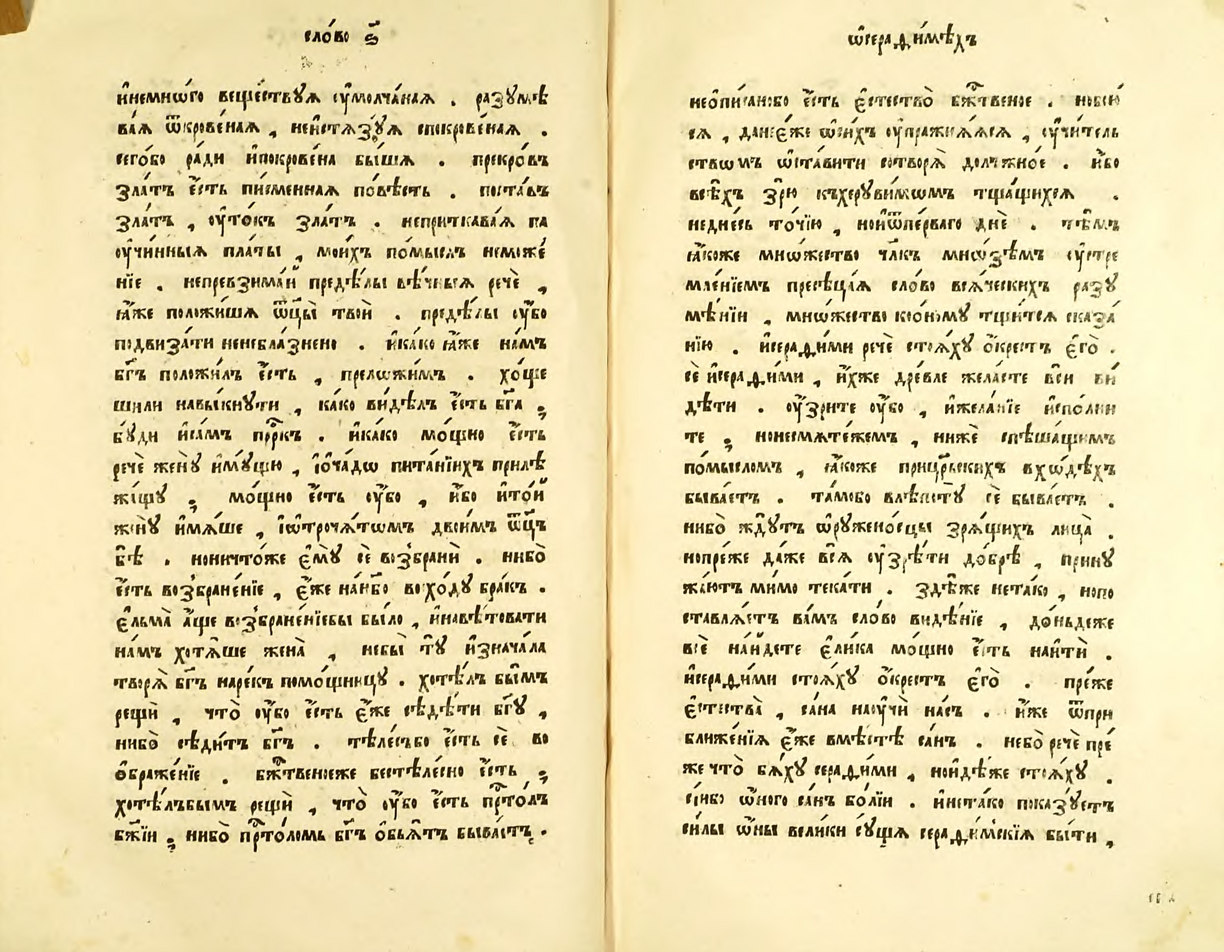 сло́во ѕ҃
и҆немно́го веще́ствꙋѧ ᲂу҆молча́наѧ . разꙋмѣ
ва́ѧ ѿкрове́наѧ , неи҆стѧзꙋ́ѧ спокрове́наѧ .
сего́бо ра́ди и҆покрове́на бы́шѧ . прекро́въ
зла́тъ є҆́сть писменнаѧ по́вѣсть . поста́въ
зла́тъ , ᲂу҆то́къ зла́тъ . неприткава́ѧ па
ᲂу҆чинныѧ пла́ты , мои́хъ по́мыслъ неможе́
нїе . непревзима́й предѣ́лы вѣ́чныѧ речѐ ,
ꙗ҆́же положи́шѧ ѿцы̀ твои̑ . предѣ́лы ᲂу҆́бо
подвиза́ти ненебла́знено . и҆ка́ко ꙗ҆́же на́мъ
бг҃ъ положи́лъ є҆́сть , прело́жимъ . хо́ще
шили навы́кнꙋти , ка́ко ви́дѣлъ є҆́сть бг҃а ;
бꙋ́ди и҆са́мъ прⷪ҇ркъ . и҆ка́ко мо́щно є҆́сть
речѐ женꙋ̀ и҆мꙋ́щю , і҆ѡ҆ча́дѡ пита́нїихъ прилѣ
жа́щꙋ ; мо́щно є҆́сть ᲂу҆́бо , и҆́бо и҆то́й
женꙋ̀ и҆мѧ́ше , і҆ѡ҆троча́томъ двои́мъ ѿц҃ъ
бѣ̀ . ноничто́же є҆мꙋ̀ сѐ возбранѝ . нибо̀
є҆́сть возбране́нїе , є҆́же на́ибо восхо́дꙋ бра́къ .
є҆льма̀ а҆́ще возбране́нїебы бы́ло , и҆навѣ́товати
на́мъ хотѧ́ше жена̀ , небы̀ тꙋ̀ и҆знача́ла
творѧ̀ бг҃ъ наре́къ помо́щницꙋ . хотѣ́лъ бы́мъ
рещѝ , что̀ ᲂу҆́бо є҆́сть є҆́же сѣдѣ́ти бг҃ꙋ ,
нибо̀ сѣди́тъ бг҃ъ . тѣлесѐбо є҆́сть сѐ во
ѻ҆браже́нїе . бжⷭ҇твеноеже бестѣле́сно є҆́сть ;
хотѣ́лъбымъ рещѝ , что̀ ᲂу҆́бо є҆́сть прⷭ҇то́лъ
бж҃їи ; нибо̀ прⷭ҇то́ломь бг҃ъ ѻ҆бьѧ́тъ быва́етъ .
ѡ҆сераѳи́мѣхъ
неѻ҆писа́нобо є҆́сть є҆стество̀ бжⷭ҇твеное .
сѧ , дане́же ѡ҆си́хъ ᲂу҆пражнѧ́ѧсѧ , ᲂу҆чи́тель
ствомъ ѡ҆ста́вити сотворѧ̀ до́лжное . и҆́бо
всѣ́хъ зрю̀ къхерꙋви́мѡмъ тща́щихсѧ .
недне́сь то́чїю , нои҆ѿпе́рваго днѐ . тѣ́мъ
ꙗ҆́коже мно́жество чл҃къ мно́зѣмъ ᲂу҆стре
мле́нїемъ пресѣца́ѧ сло́во всѧ́ческихъ разꙋ
мѣ́нїи , мно́жество ко́номꙋ тщи́тсѧ сказа́
нїю . и҆сераѳи́ми речѐ стоѧ́хꙋ ѻ҆́крестъ є҆гѡ̀ .
сѐ и҆сераѳи́ми , и҆́хже дре́вле жела́сте всѝ ви́
дѣти . ᲂу҆зри́те ᲂу҆́бо , и҆жела́нїе и҆спо́лни
те ; нонесмѧте́жемъ , нижѐ спѣша́щимъ
по́мысломъ , ꙗ҆́коже прицр҃ьскихъ вхо́дѣхъ
быва́етъ . та́мобо влѣ́потꙋ сѐ быва́етъ .
нибо̀ жꙋ́тъ ѡ҆рꙋженосцы зрѧ́щихъ лица̀ .
нопре́же да́же всѧ̀ ᲂу҆зрѣ́ти до́брѣ , принꙋ
жа́ютъ ми́мо тека́ти . здѣ́же нета́ко , нопо
ставлѧ́етъ ва́мъ сло́во ви́дѣнїе , до́ньдеже
всѐ наи́дете є҆ли́ка мо́щно є҆́сть наи́ти .
и҆сераѳи́ми стоѧ́хꙋ ѻ҆́крестъ є҆гѡ̀ . пре́же
є҆стества̀ , са́на наᲂу҆чѝ на́съ . и҆́же ѿпри
ближе́нїѧ є҆́же вмѣ́стѣ са́нъ . небо̀ речѐ пре́
же что̀ бѧ́хꙋ сераѳи́ми , нои҆дѣ́же стоѧ́хꙋ .
си́бо ѡ҆́ного са́нъ бо́лїи . и҆неста́ко показꙋ́етъ
си́лы ѡ҆́ны вели́ки сꙋ́щѧ сераѳи́мскїѧ бы́ти ,